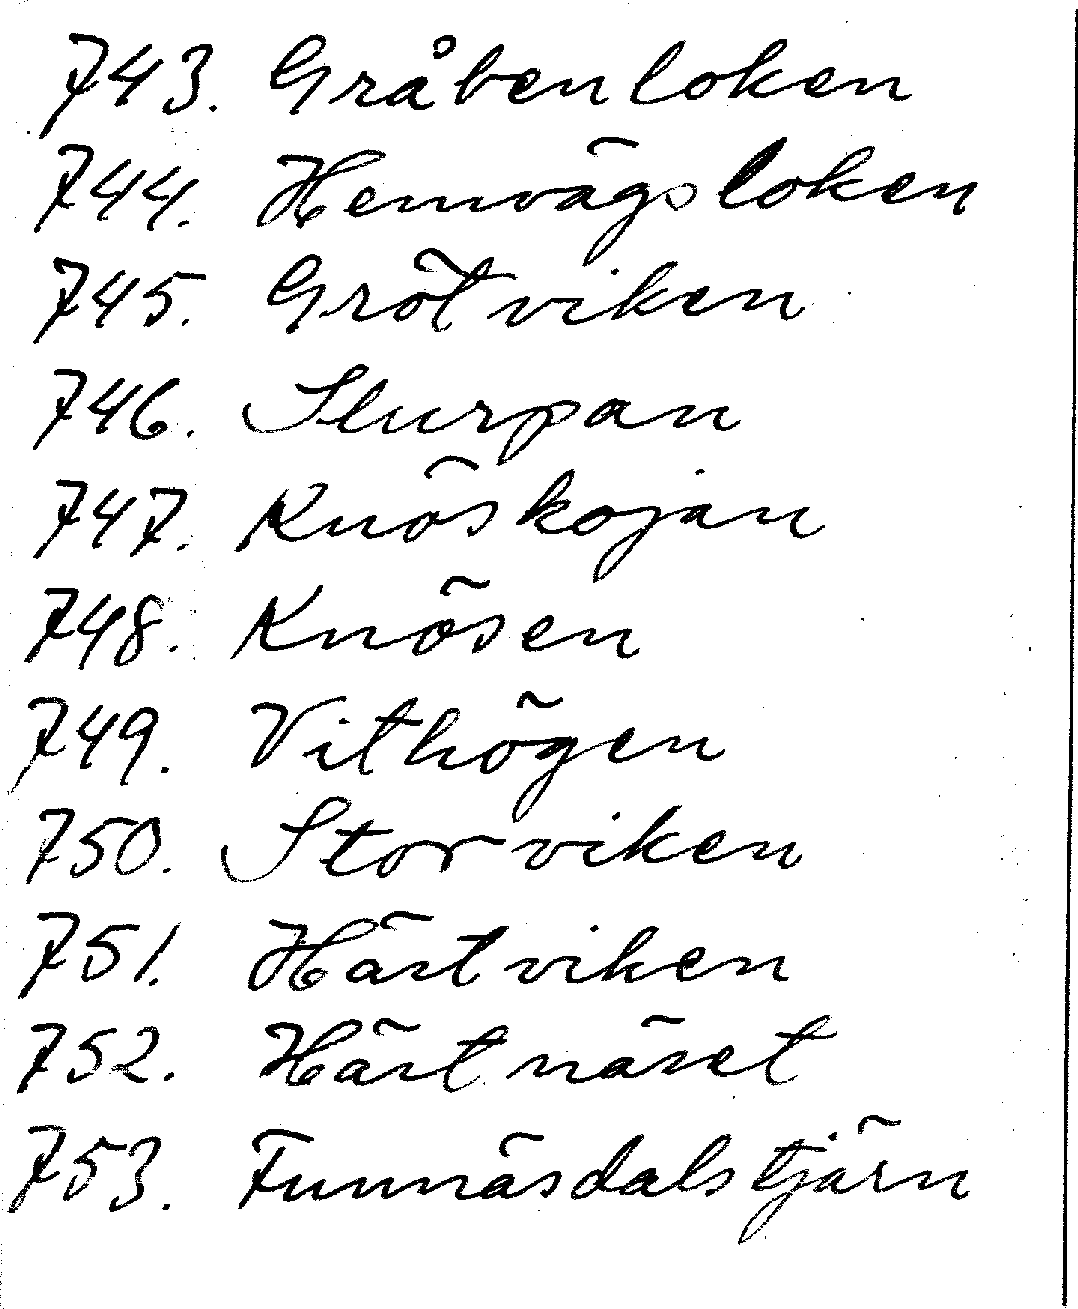 743. Gråbenloken
744. Hemvägsloken
745. Grötviken
746. Slurpan
747. Knöskojan
748. Knösen
749. Vithögen
750. Storviken
751. Hästviken
752. Hästnäset
753. Funnäsdalstjärn